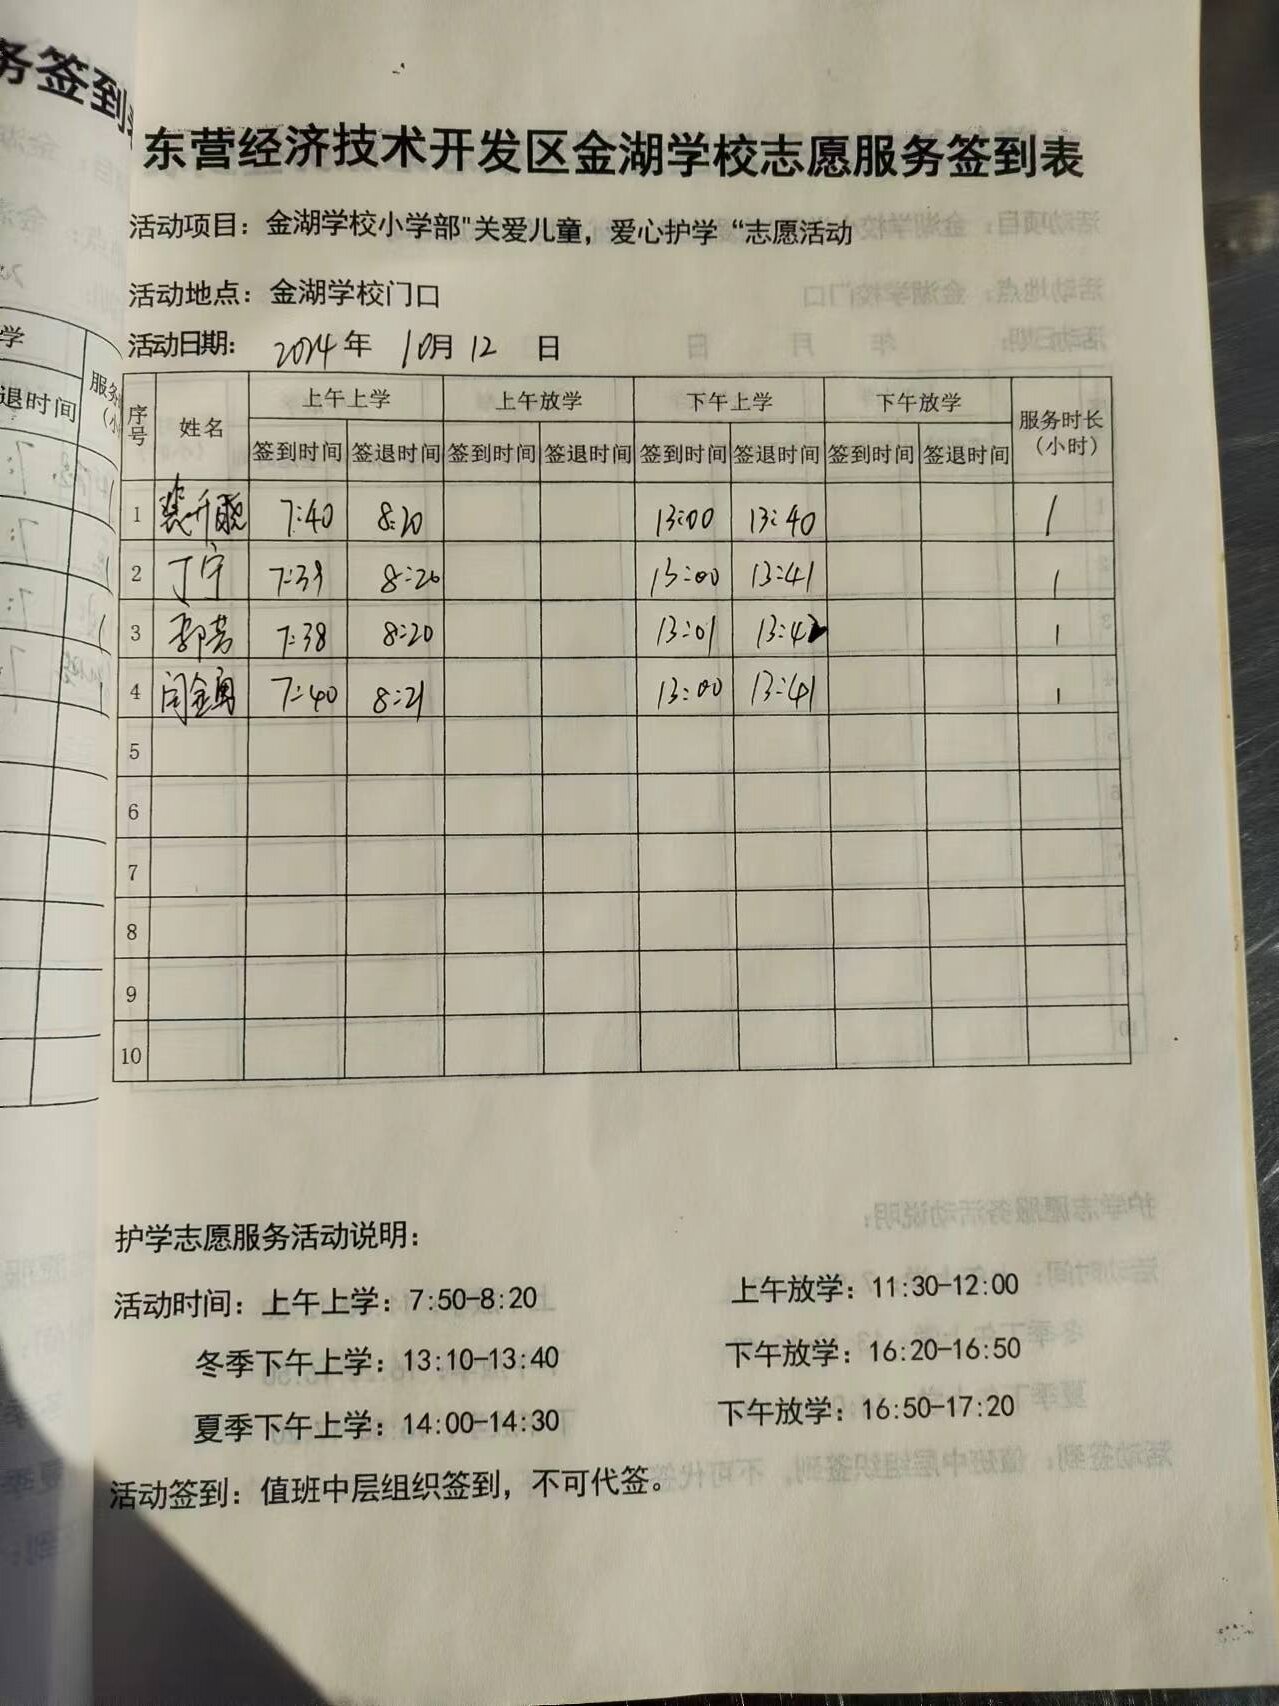 务签到
东营经济技术开发区金湖学校志愿服务签到表
活动项目：金湖学校小学部"关爱儿童，爱心护学“志愿活动
活动地点：金湖学校门口
活动日期： 2024年 10月12 日
学
退时间
服务
序号 姓名 上午上学 上午放学 下午上学 下午放学 服务时长（小时）
签到时间 签退时间 签到时间 签退时间 签到时间 签退时间 签到时间 签退时间
1 7:40 8:20 13:00 13:40 1
2 丁宁 7:39 8:20 13:00 13:41 1
3 郭芳 7:38 8:20 13:01 13:42 1
4 闫金勇 7:40 8:21 13:00 13:41 1
5
6
7
8
9
10
护学志愿服务活动说明：
活动时间：上午上学：7:50-8:20 上午放学：11:30-12:00
冬季下午上学：13:10-13:40 下午放学：16:20-16:50
夏季下午上学：14:00-14:30 下午放学：16:50-17:20
活动签到：值班中层组织签到，不可代签。